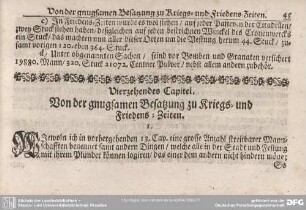 Von der gnugsamen Besatzung zu Kriegs- und Friedens-Zeiten. 45
c) In Friedens-Zeiten würde es was sehen / auf jeder Batterie der Citadellen /
zwey Stück stehen haben / desgleichen auf jeden bestrichen Winckel des Cronenwercks
ein Stück / das macht dann nun aller dieser Orten um die Vestung herum 44. Stück / zu-
samt vorigen 120. eben 364. Stück.
d) Unter obgenannten Sachen / sind vor Bomben und Granaten versichert
19880. Mann / 320. Stück 21072. Centner Pulver / nebst allem andern zubehör.
Vierzehendes Capitel.
Von der gnugsamen Besatzung zu Kriegs- und
Friedens-Zeiten.
1.
Wiewohl ich in vorhergehenden 13. Cap. eine grosse Anzahl streitbarer Mann-
schafften benannt samt andern Dingen / welche alle in der Stadt und Festung
mit ihrem Pfunder können logiren / das einer dem andern nicht hindern möge;
So
DFG
Deutsche Forschungsgemeinschaft